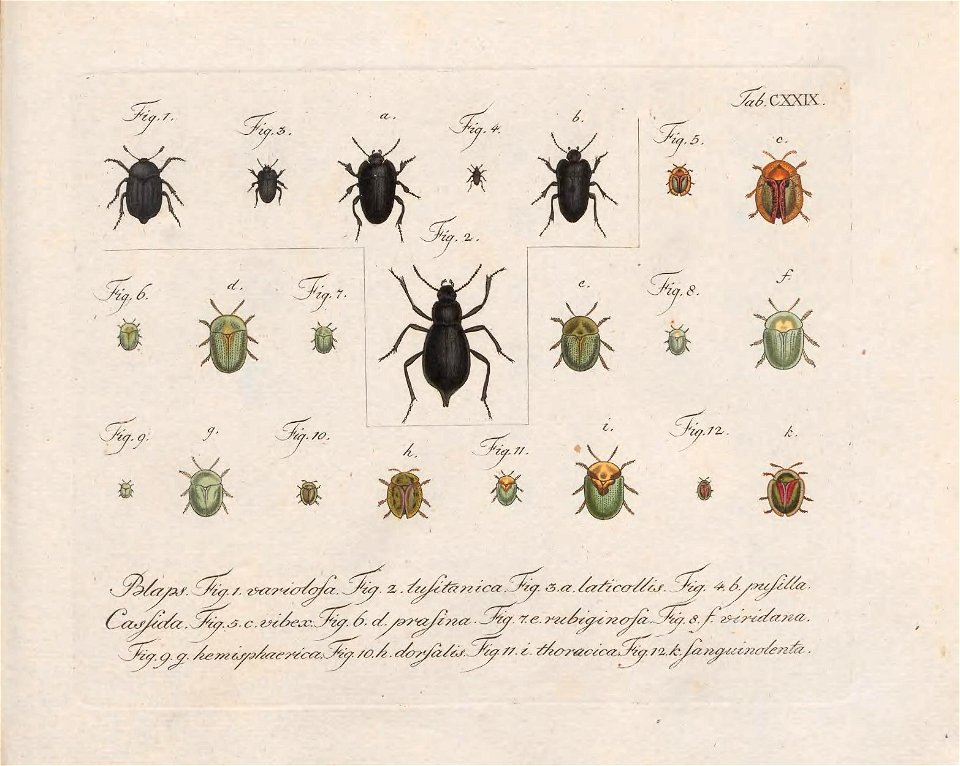 Tab. CXXIX.
Fig. 1.
Fig. 3.
a.
Fig. 4.
b.
Fig. 5.
c.
Fig. 2.
Fig. 6.
d.
Fig. 7.
e.
Fig. 8.
f.
Fig. 9.
g.
Fig. 10.
h.
Fig. 11.
i.
Fig. 12.
k.
Blaps. Fig. 1. variolosa. Fig. 2. lusitanica. Fig. 3. a. laticollis. Fig. 4. b. pusilla.
Cassida. Fig. 5. c. vibex. Fig. 6. d. prasina. Fig. 7. e. rubiginosa. Fig. 8. f. viridana.
Fig. 9. g. hemisphaerica. Fig. 10. h. dorsalis. Fig. 11. i. thoracica. Fig. 12. k. sanguinolenta.